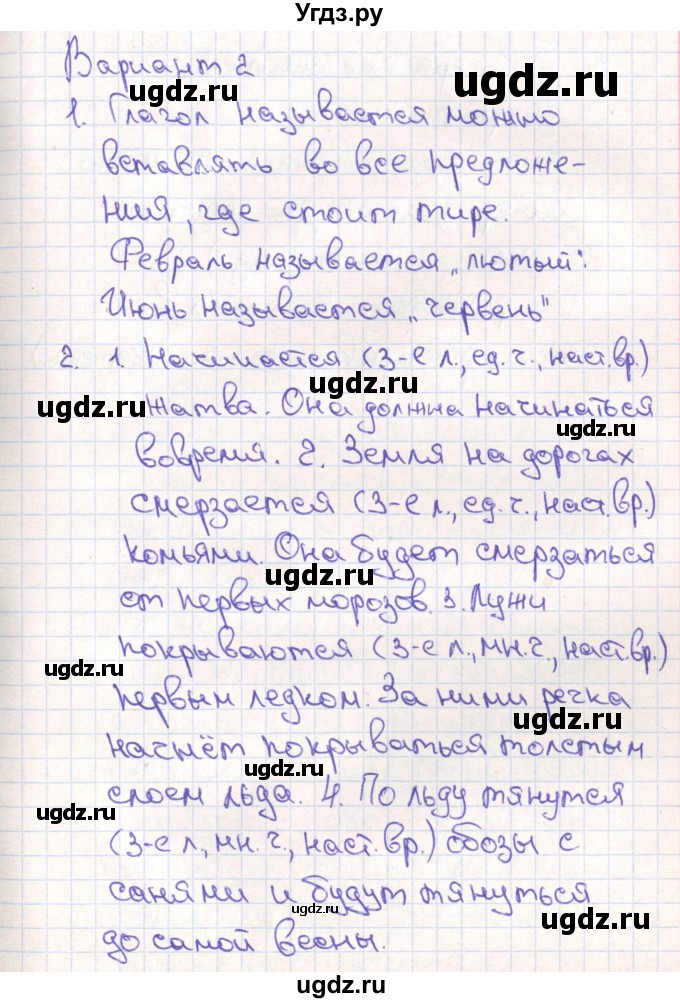 Угдз.ру
Вариант 2
ugdz.ru ugdz.ru
1. Глагол называется можно
вставлять во все предложе-
ugdz.ru ugdz.ru
ния, где стоит тире.
Февраль называется „лютый".
Июнь называется „червень"
2. 1. Начинается (3-е л., ед. ч., наст. вр.)
ugdz.ru
ugdz.ru Жатва. Она должна начинаться
ugdz.ru
вовремя. 2. Земля на дорогах
смерзается (3-е л., ед. ч., наст. вр.)
комьями. Она будет смерзаться
ugdz.ru
от первых морозов. 3. Лужи
покрываются (3-е л., мн. ч., наст. вр.)
ugdz.ru
первым ледком. За ними речка
ugdz.ru
начнёт покрываться толстым
ugdz.ru
слоем льда. 4. По льду тянутся
ugdz.ru
(3-е л., мн. ч., наст. вр.) обозы с
санями и будут тянуться
ugdz.ru
до самой весны.
ugdz.ru
ugdz.ru